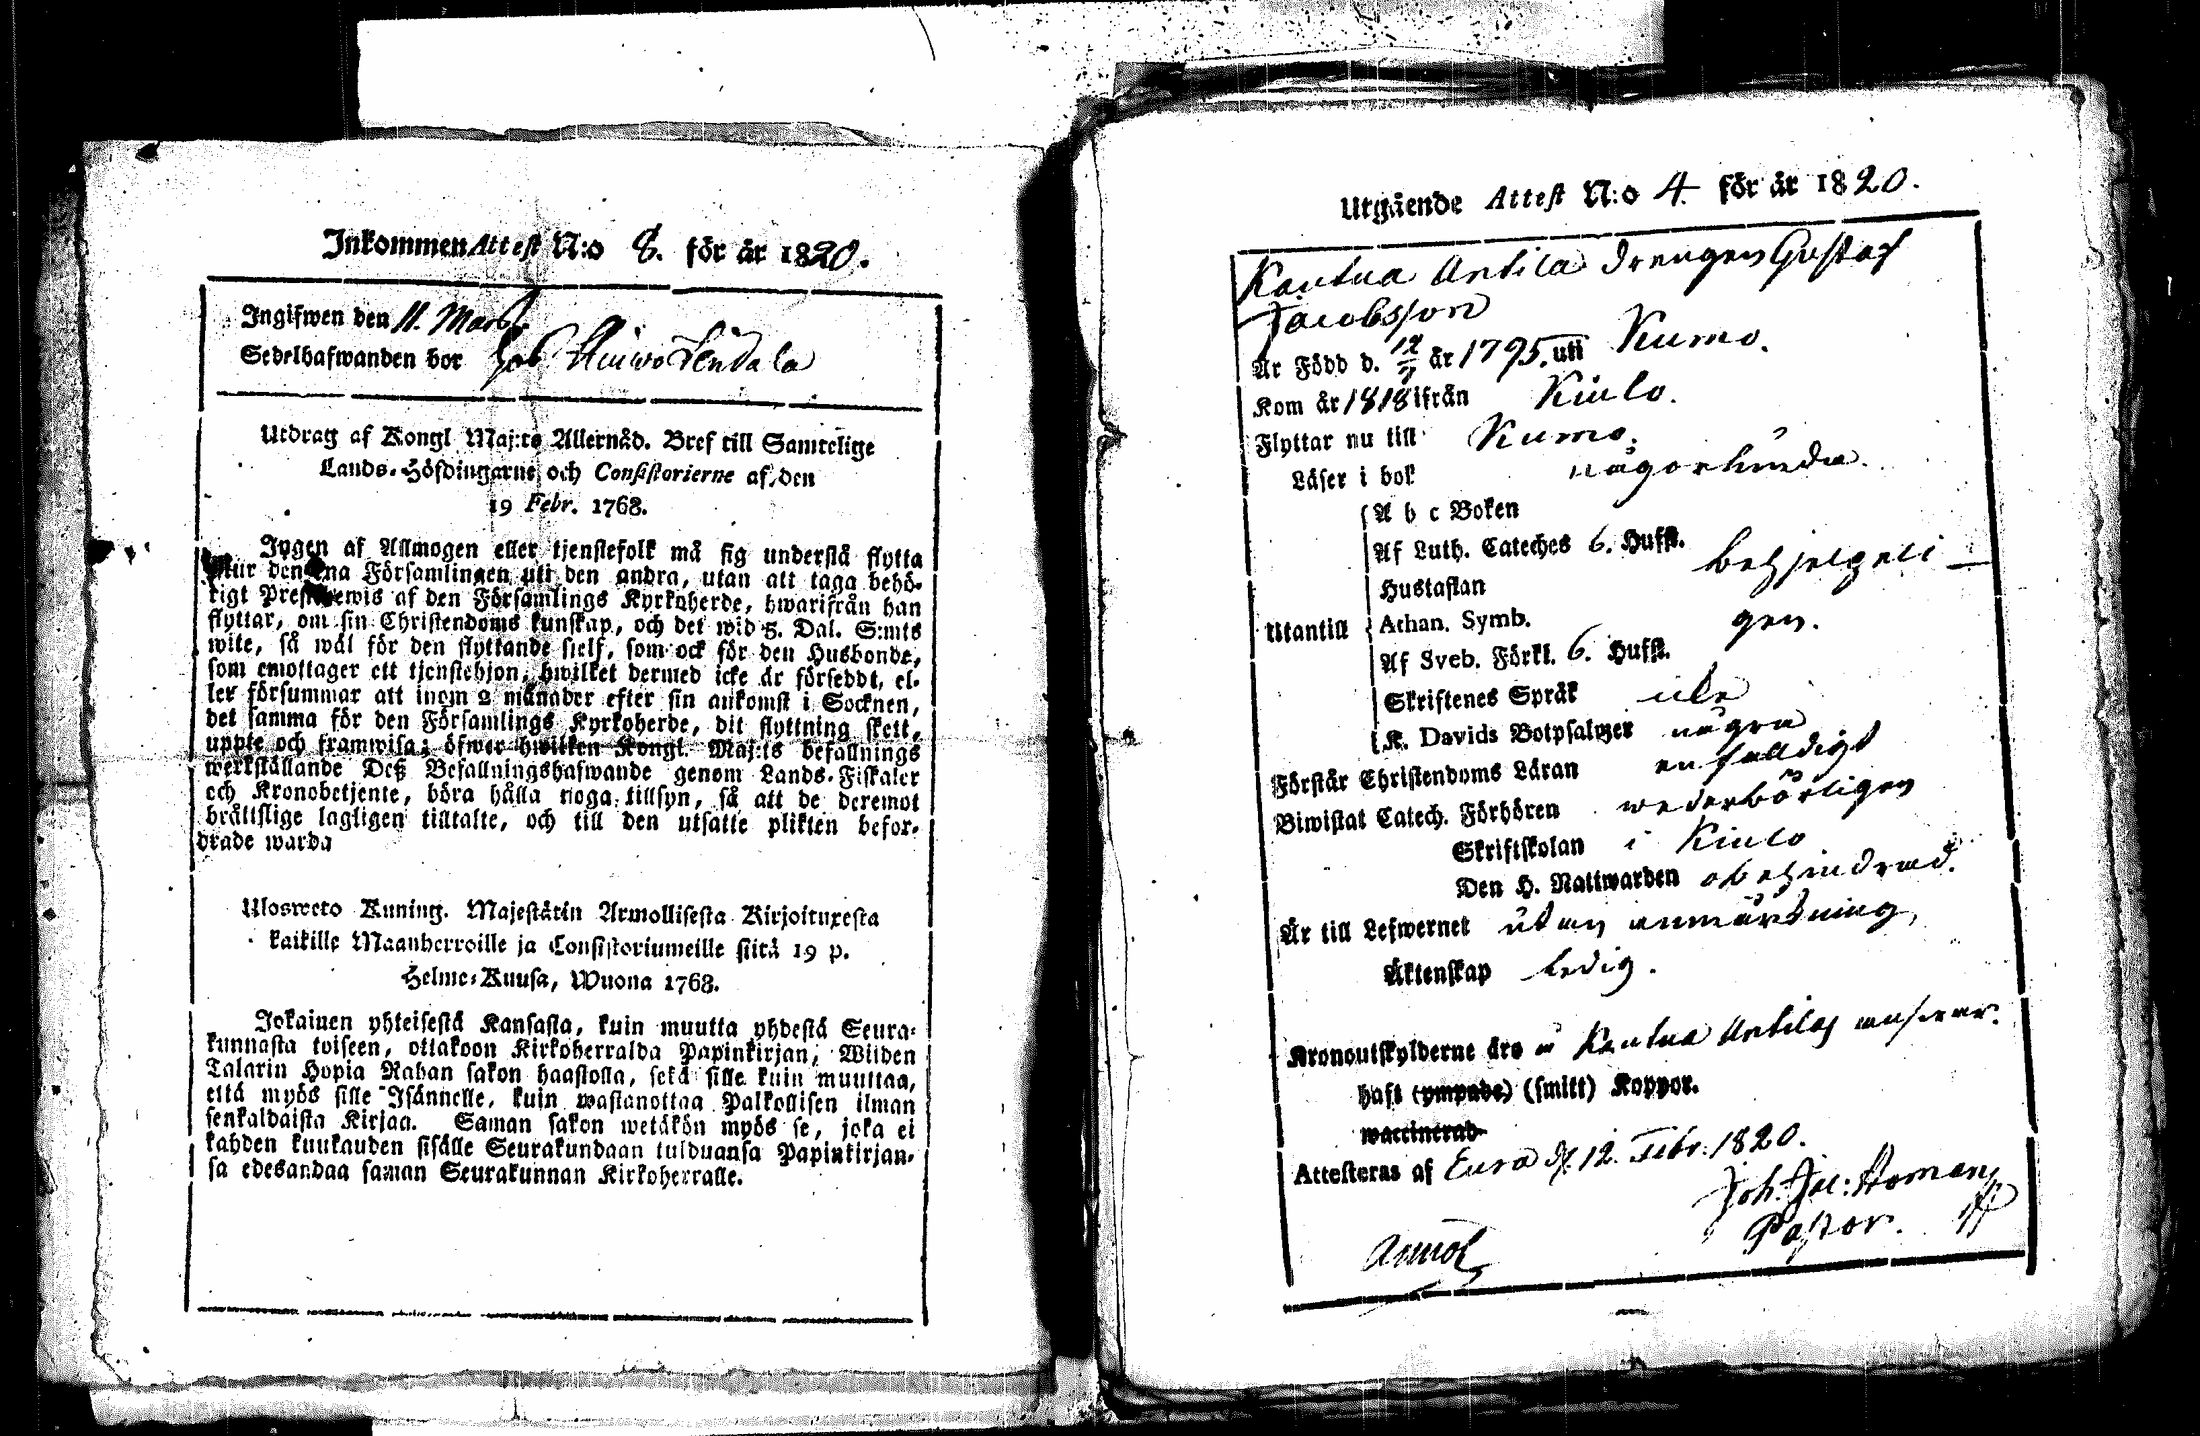 Inkommen Attest N:o 8. för år 1820.
Ingifwen den 11. Mars
Sedelhafwanden bor hos
Utdrag af Kongl Maj:ts Allernåd. Bref till Samtelige
Lands-Höfdingarne och Consistorierne af den
19 Febr. 1768.
Ingen af Allmogen eller tjenstefolk må sig understå flytta
utur den ena Församlingen uti den andra, utan att taga behö-
rigt Prestbewis af den Församlings Kyrkoherde, hwarifrån han
flyttar, om sin Christendoms kunskap, och det wid 5. Dal. S:mts
wite, så wäl för den flyttande sielf, som ock för den Husbonde,
som emottager ett tjenstehjon, hwilket dermed icke är förseddt, el-
ler försummar att inom 2 månader efter sin ankomst i Socknen,
det samma för den Församlings Kyrkoherde, dit flyttning skett,
uppte och framwisa; öfwer hwilken Kongl. Maj:ts befallnings
werkställande Deß Befallningshafwande genom Lands-Fiskaler
och Kronobetjente, böra hålla noga tillsyn, så att de deremot
bråttslige lagligen tilltalte, och till den utsatte plikten befor-
drade warda
Ulosweto Kuning. Majestätin Armollisesta Kirjoituxesta
kaikille Maanherroille ja Consistoriumeille siitä 19 p.
Helme-Kuusa, Wuona 1768.
Jokainen yhteisestä Kansasta, kuin muutta yhdestä Seura-
kunnasta toiseen, ottakoon Kirkoherralda Papinkirjan, Wiiden
Talarin Hopia Rahan sakon haastolla, sekä sille kuin muuttaa,
että myös sille Isännelle, kuin wastanottaa Palkollisen ilman
senkaldaista Kirjaa. Saman sakon wetäkön myös se, joka ei
kahden kuukauden sisälle Seurakundaan tulduansa Papinkirjan-
sa edesandaa saman Seurakunnan Kirkoherralle.
Utgående Attest N:o 4. för år 1820.
Kantua Antila drengen Gustaf
Jacobsson
Är Född d. 12/7 år 1795. uti Kumo.
Kom år 1818 ifrån Kiulo.
Flyttar nu till Kumo.
Läser i bok någorlunda.
A b c Boken
Af Luth. Cateches 6. Hufst.
Hustaflan behjelpeli-
Utantill Athan. Symb. gen.
Af Sveb. Förkl. 6. Hufst.
Skriftenes Språk icke
K. Davids Botpsalmer några
Förstår Christendoms Läran enfaldigt
Biwistat Catech. Förhören wederbörligen
Skriftskolan i Kiulo
Den H. Nattwarden obehindrad.
Är till Lefwernet utan anmärkning,
Äktenskap ledig.
Kronoutskylderne äro å Kantua Antilas answar.
haft (ympade) (smitt) Koppor.
waccinerad
Attesteras af Eura d. 12. Febr. 1820.
Pastor.